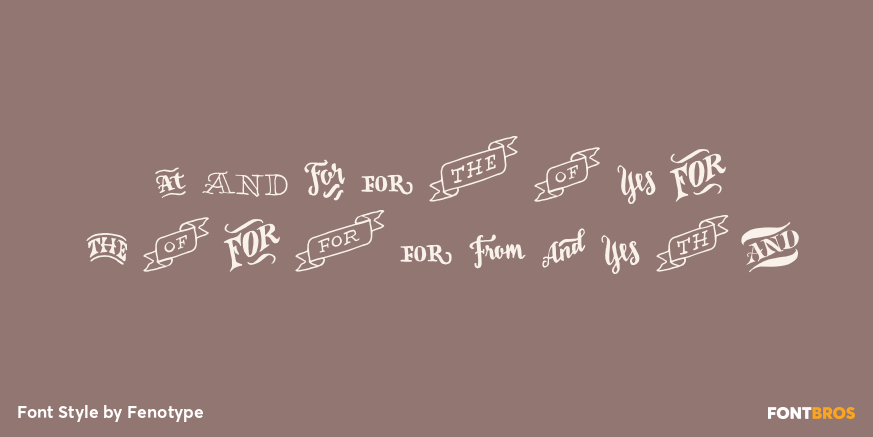 At AND For FOR THE OF Yes FOR
THE OF FOR FOR FOR From And Yes TH AND
Font Style by Fenotype
FONTBROS